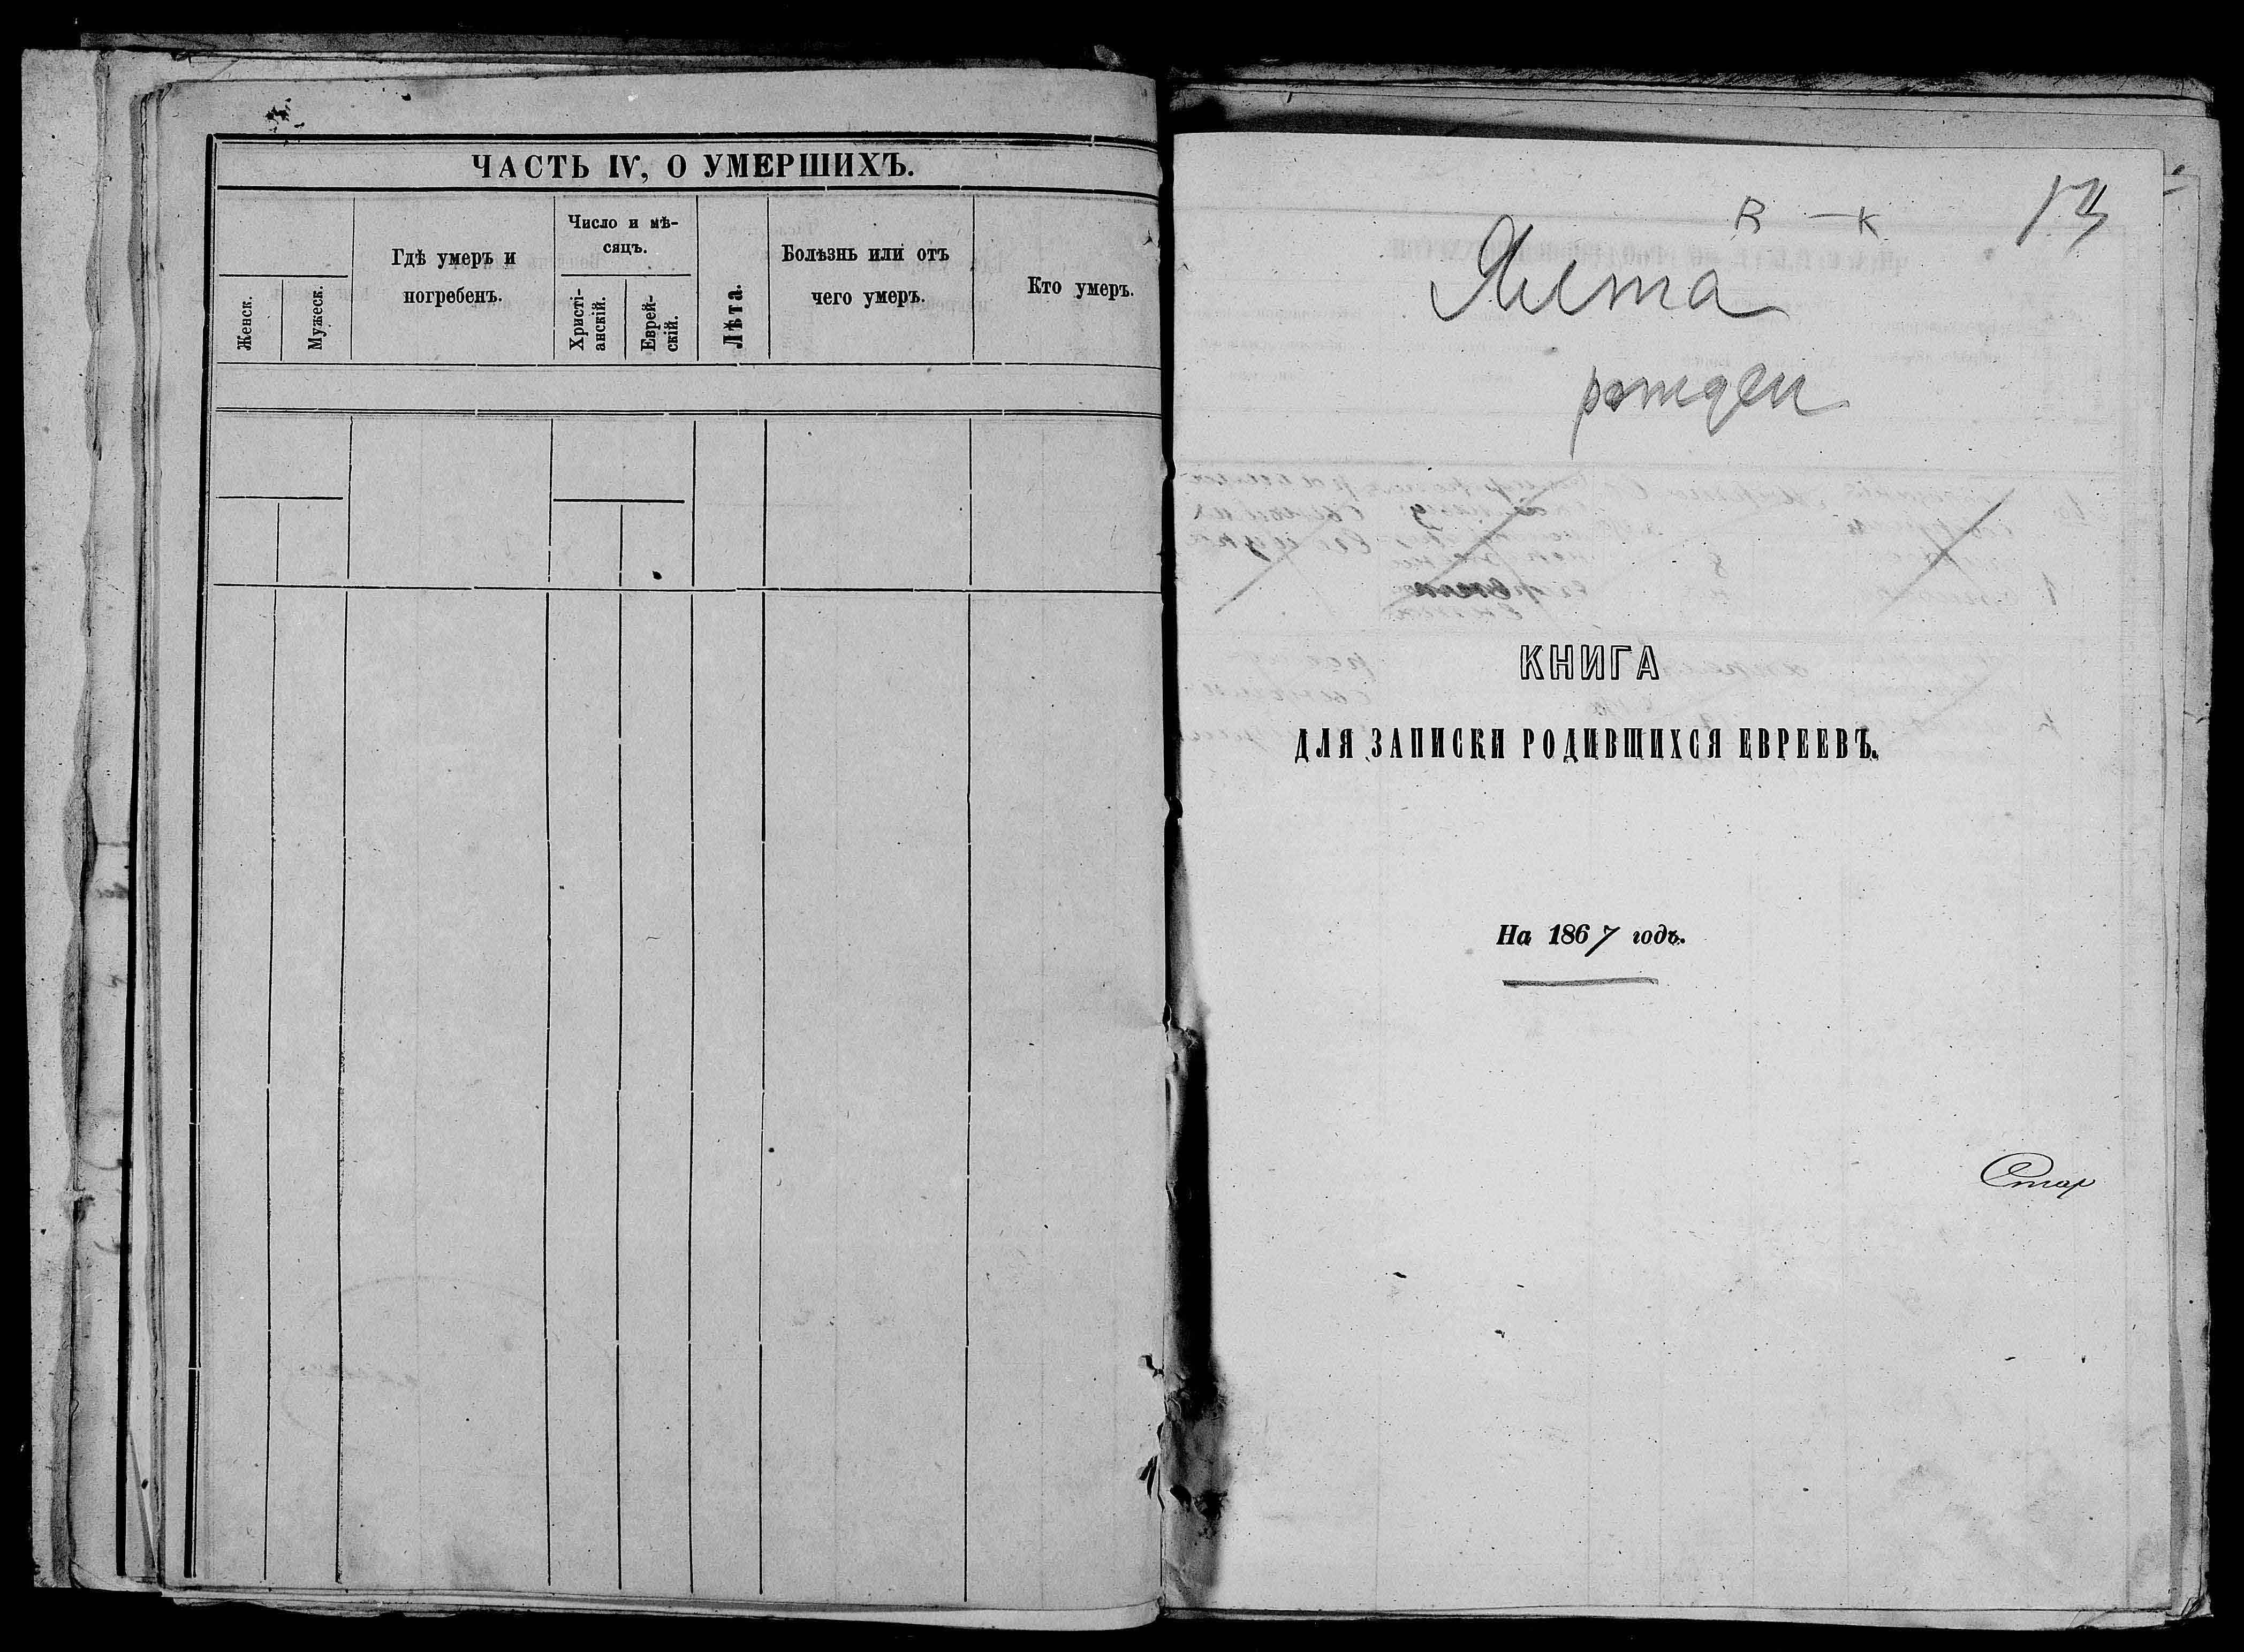 ЧАСТЬ IV, О УМЕРШИХЪ.
Женск.
Мужеск.
Гдѣ умеръ и
погребенъ.
Число и мѣ-
сяцъ.
Христі-
анскій.
Еврей-
скій.
Лѣта.
Болѣзнь или отъ
чего умеръ.
Кто умеръ.
R - к 13
Ялта
рожден
КНИГА
ДЛЯ ЗАПИСКИ РОДИВШИХСЯ ЕВРЕЕВЪ.
На 1867 годъ.
Стар